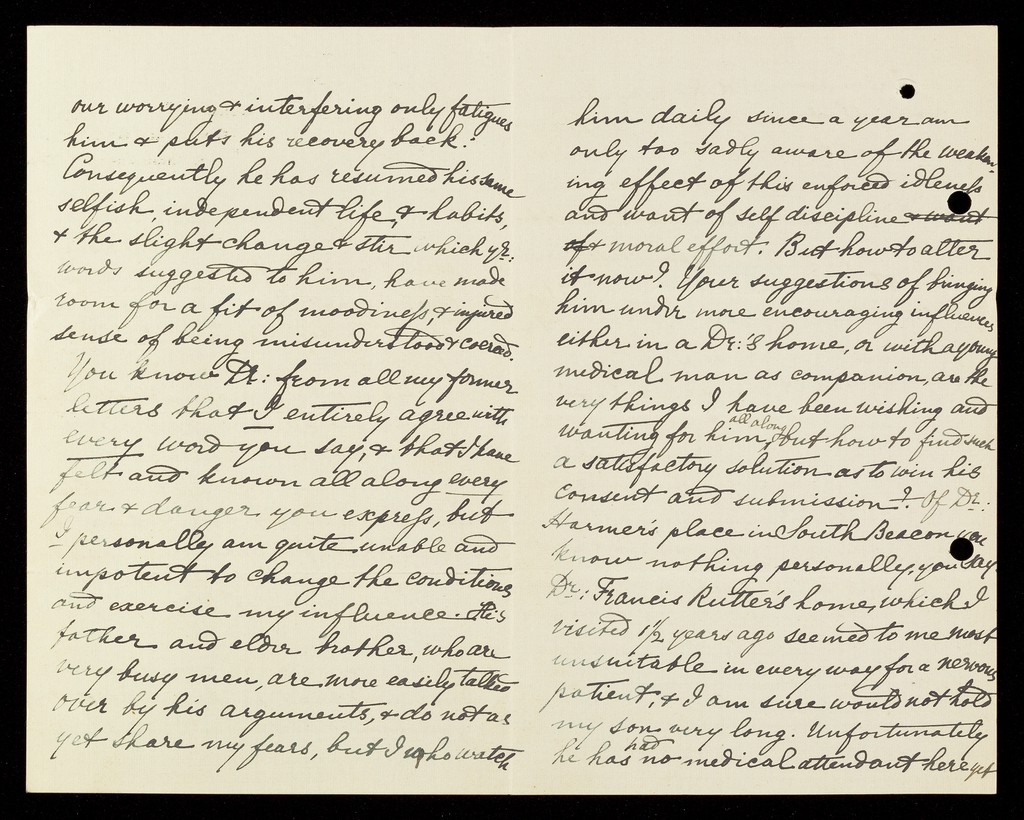 our worrying & interfering only fatigues
him & puts his recovery back."
Consequently he has resumed his same
selfish, independent life, & habits,
& the slight change & stir, which yr:
words suggested to him, have made
room for a fit of moodiness, & injured
sense of being misunderstood & coerced.
You know Dr: from all my former
letters that I entirely agree with
every word you say, & that I have
felt and known all along every
fear & danger you express, but
I personally am quite unable and
impotent to change the conditions
and exercise my influence. His
father and elder brother, who are
very busy men, are more easily talked
over by his arguments, & do not as
yet share my fears, but I who watch
him daily since a year am
only too sadly aware of the weaken-
ing effect of this enforced idleness
and want of self discipline & want
of & moral effort. But how to alter
it now? Your suggestions of bringing
him under more encouraging influences
either in a Dr:'s home, or with a young
medical man as companion, are the
very things I have been wishing and
wanting for him, all along, but how to find such
a satisfactory solution as to win his
consent and submission? Of Dr:
Harmer's place in South Beacon you
know nothing personally, you say.
Dr: Francis Rutter's home, which I
visited 1½ years ago seemed to me most
unsuitable in every way for a nervous
patient, & I am sure would not hold
my son very long. Unfortunately
he has had no medical attendant here yet